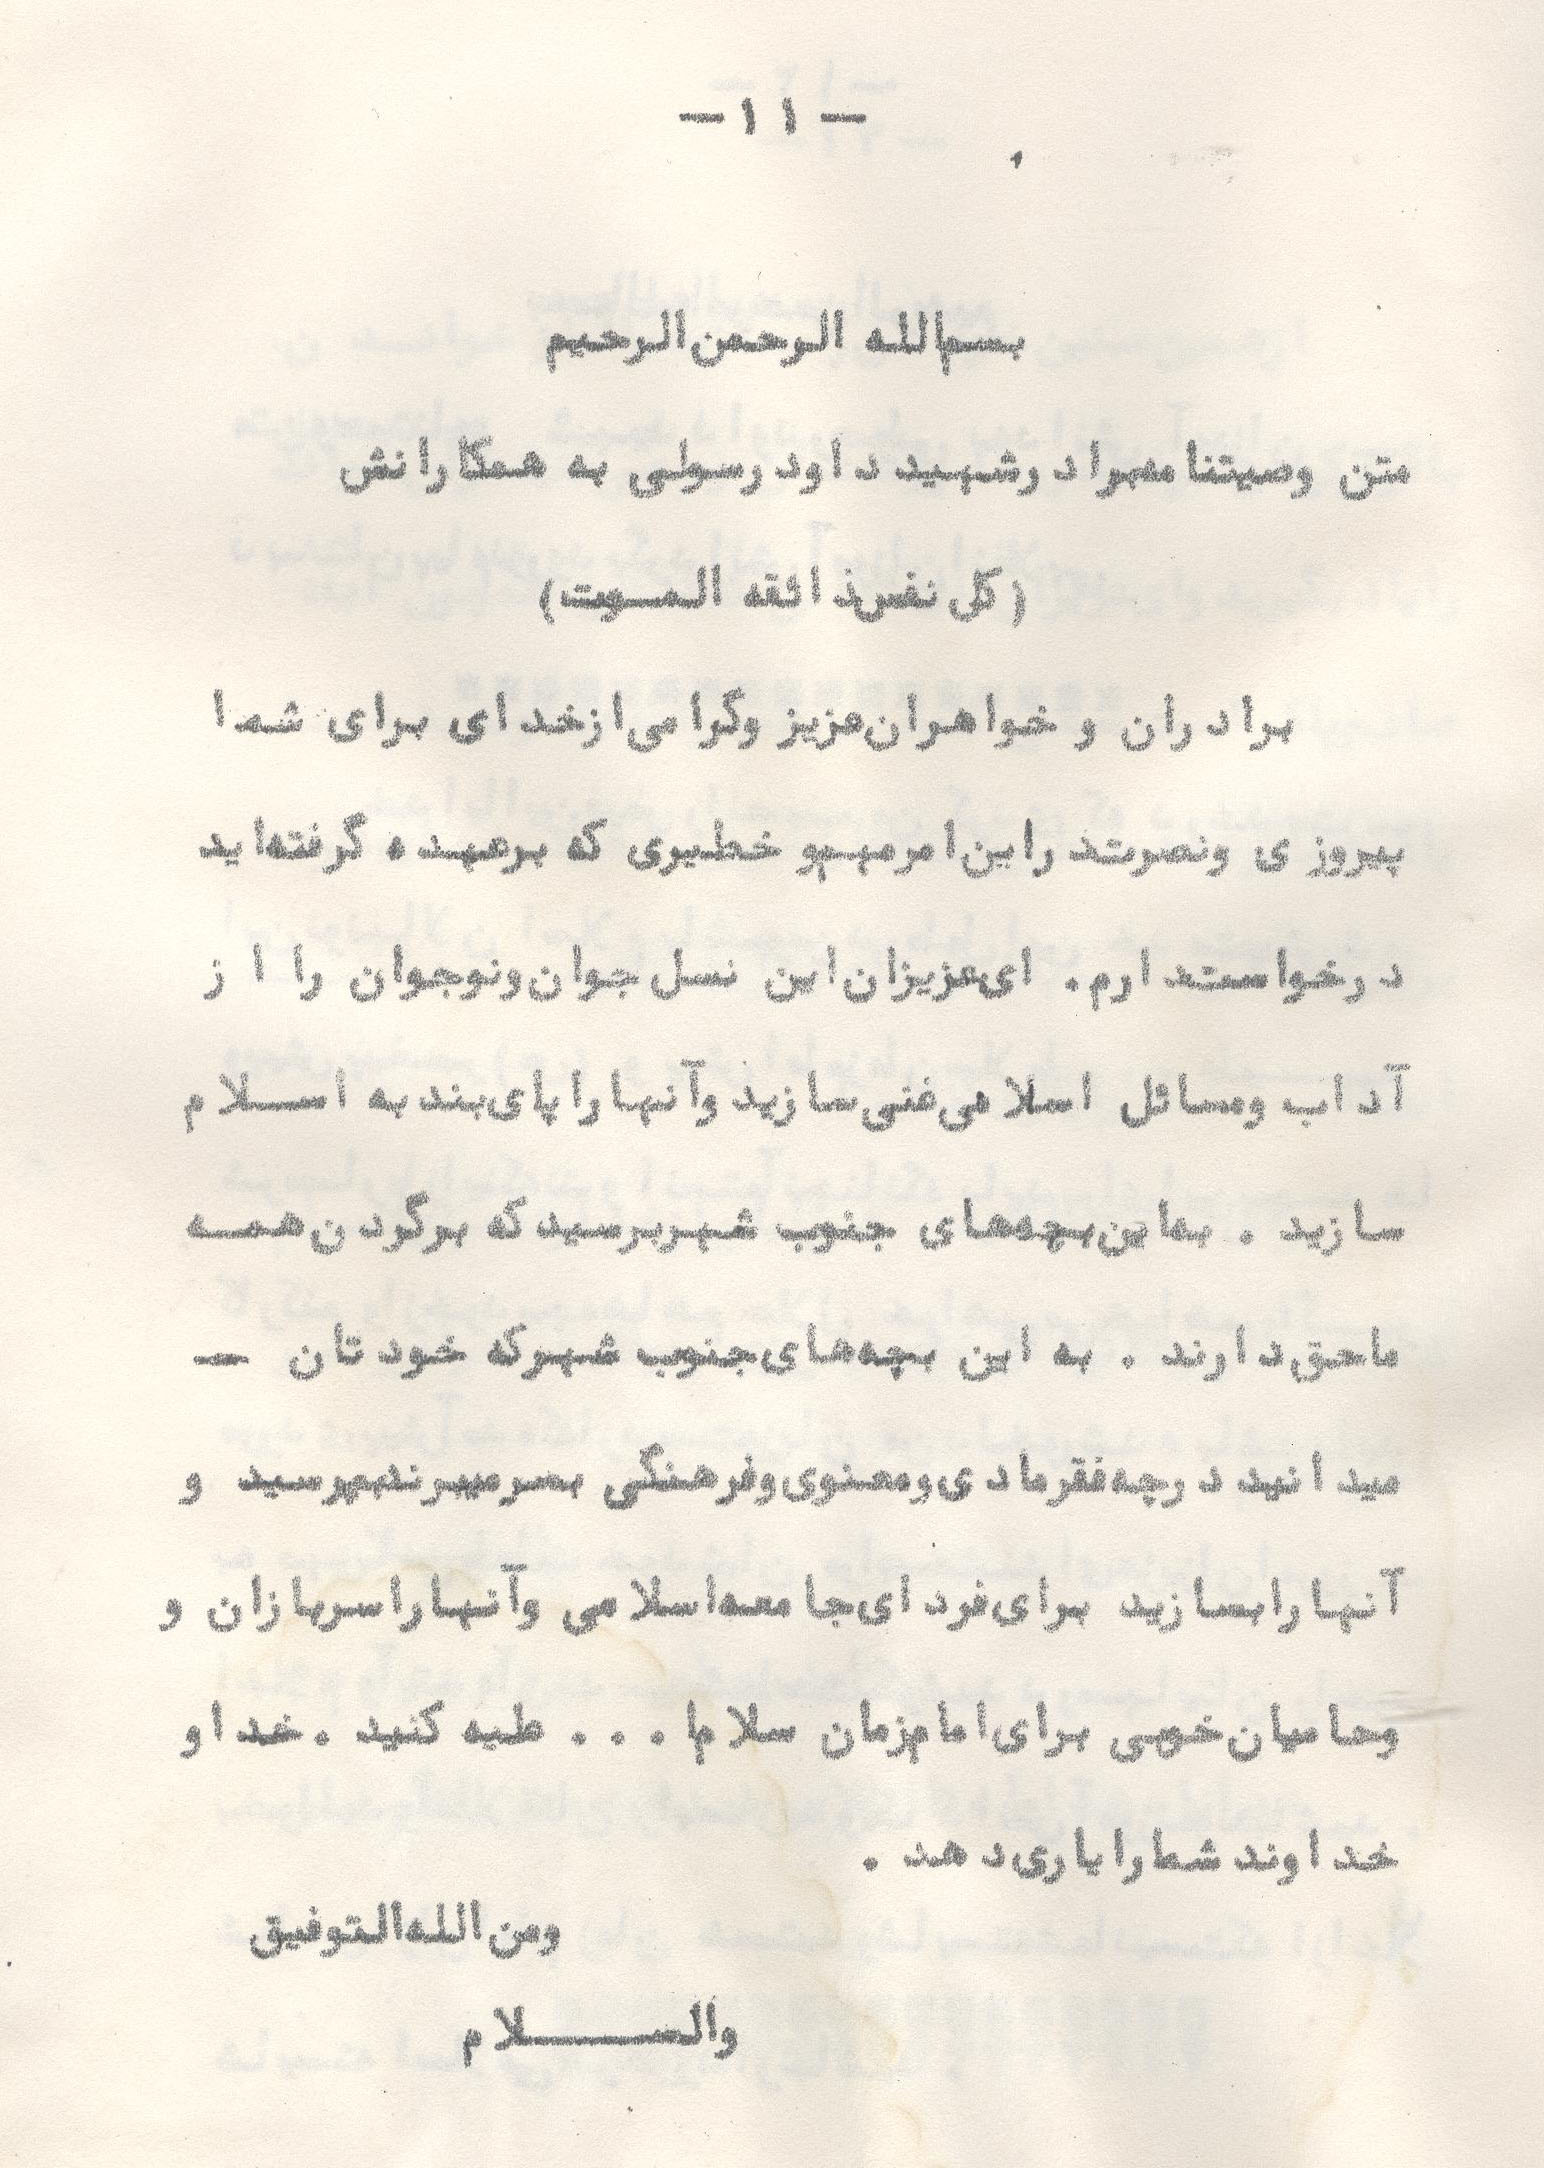 -۱۱-
بسم‌الله الرحمن‌الرحیم
متن وصیتنامه‌برادرشهیدداودرسولی به همکارانش
(کل نفس‌ذائقه المـوت)
برادران و خواهران‌عزیز وگرامی‌ازخدای برای شما
پیروزی ونصرت‌دراین‌امرمهم‌و خطیری که برعهده گرفته‌اید
درخواست‌دارم. ای‌عزیزان‌این نسل جوان‌ونوجوان را از
آداب ومسائل اسلامی‌غنی‌سازید وآنهاراپای‌بند به اسـلام
سازید . به‌این‌بچه‌های جنوب شهربرسیدکه برگردن‌همـه
ماحق‌دارند . به این بچه‌های‌جنوب شهرکه خودتان -
میدانید درچه‌فقرمادی‌ومعنوی‌وفرهنگی بسرمیبرندبرسید و
آنهارابسازید برای‌فردای‌جامعه‌اسلامی وآنهاراسربازان و
وحامیان‌خوبی برای‌امام‌زمان سلام‌ا... علیه کنید .خداو
خداوندشمارایاری‌دهد .
ومن‌الله‌التوفیق
والســـــلام